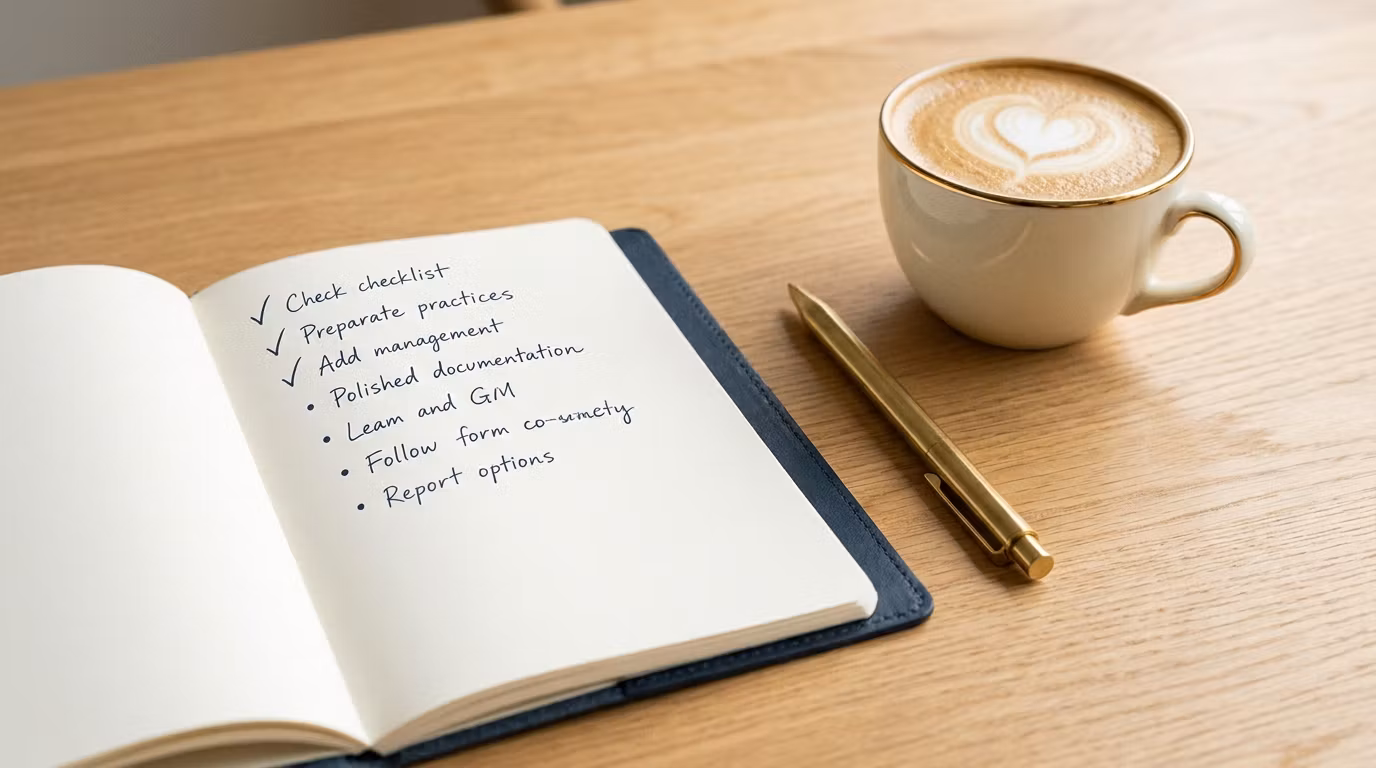 ✓ Check checklist
✓ Preparate practices
✓ Add management
• Polished documentation
• Learn and GM
• Follow form
• Report options